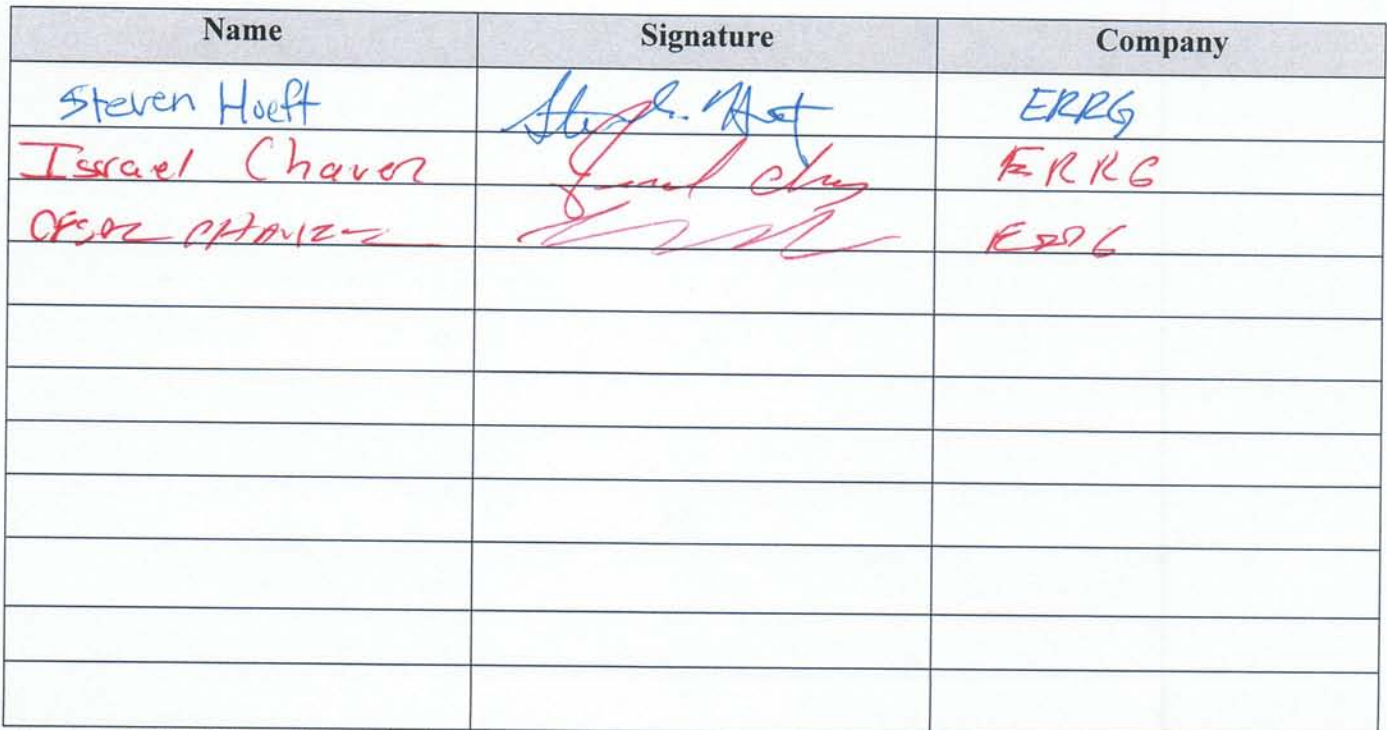 Name Signature Company
Steven Hoeft ERRG
Israel Chavez ERRG
CHAVEZ ERRG